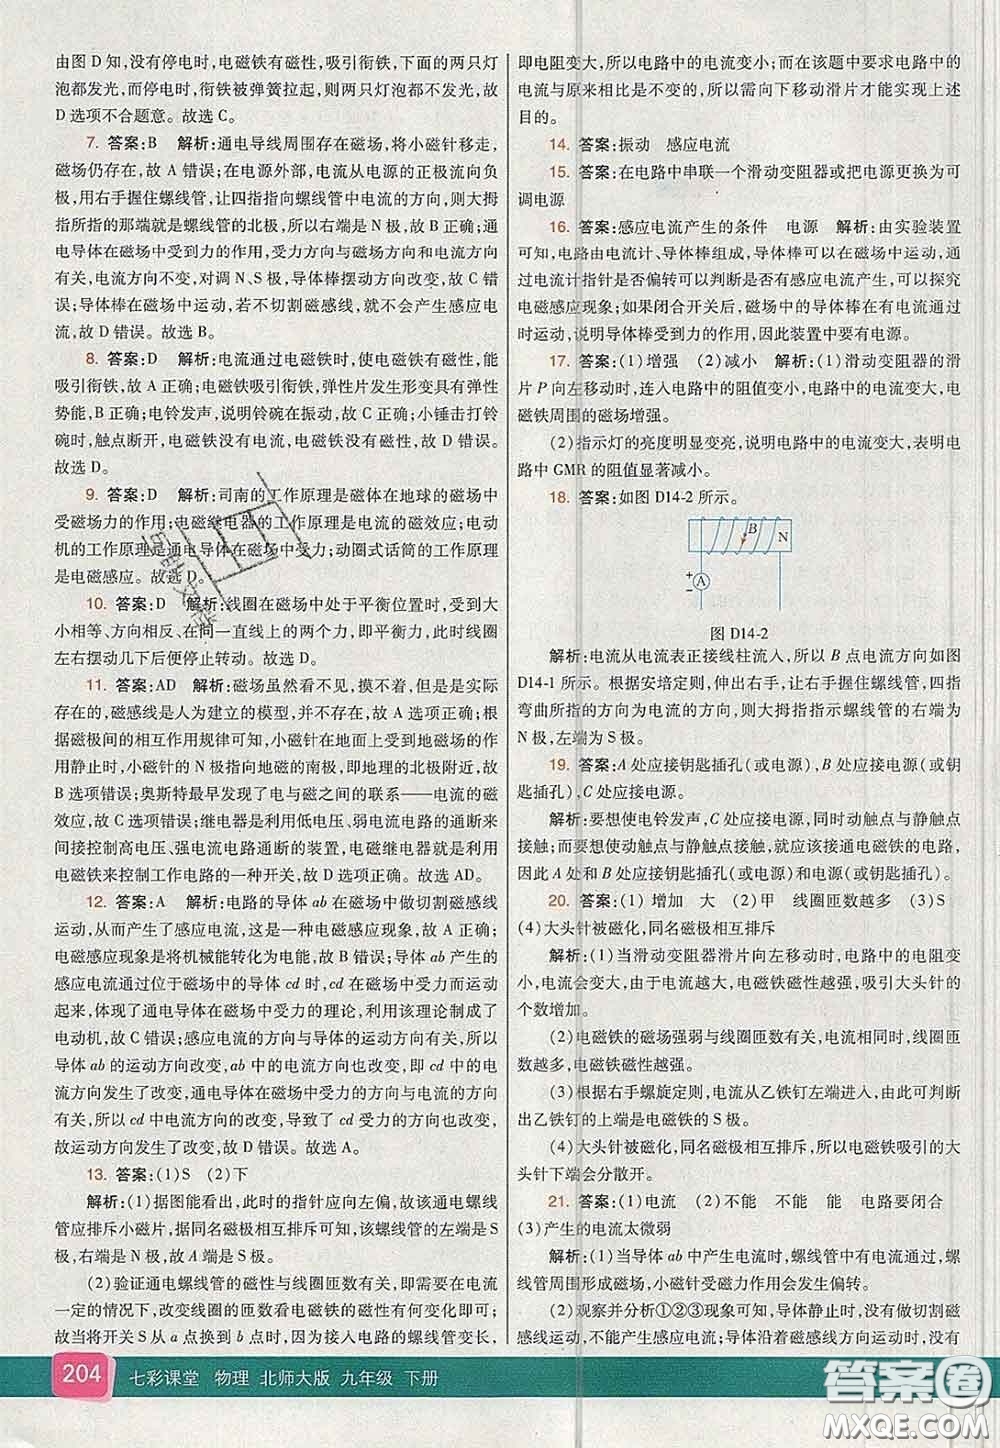 由图 D 知,没有停电时,电磁铁有磁性,吸引衔铁,下面的两只灯
泡都发光,而停电时,衔铁被弹簧拉起,两只灯泡都不发光,故
D 选项不合题意。故选 C。
7. 答案:B 解析:通电导线周围存在磁场,将小磁针移走,
磁场仍存在,故 A 错误;在电源外部,电流从电源的正极流向负
极,用右手握住螺线管,让四指指向螺线管中电流的方向,则大拇
指所指的那端就是螺线管的北极,所以右端是 N 极,故 B 正确;通
电导体在磁场中受到力的作用,受力方向与磁场方向和电流方向
有关,电流方向不变,对调 N、S 极,导体棒摆动方向改变,故 C 错
误;导体棒在磁场中运动,若不切割磁感线,就不会产生感应电
流,故 D 错误。故选 B。
8. 答案:D 解析:电流通过电磁铁时,使电磁铁有磁性,能
吸引衔铁,故 A 正确;电磁铁吸引衔铁,弹性片发生形变具有弹性
势能,B 正确;电铃发声,说明铃碗在振动,故 C 正确;小锤击打铃
碗时,触点断开,电磁铁没有电流,电磁铁没有磁性,故 D 错误。
故选 D。
9. 答案:D 解析:司南的工作原理是磁体在地球的磁场中
受磁场力的作用;电磁继电器的工作原理是电流的磁效应;电动
机的工作原理是通电导体在磁场中受力;动圈式话筒的工作原理
是电磁感应。故选 D。
10. 答案:D 解析:线圈在磁场中处于平衡位置时,受到大
小相等、方向相反、在同一直线上的两个力,即平衡力,此时线圈
左右摆动几下后便停止转动。故选 D。
11. 答案:AD 解析:磁场虽然看不见,摸不着,但是是实际
存在的,磁感线是人为建立的模型,并不存在,故 A 选项正确;根
据磁极间的相互作用规律可知,小磁针在地面上受到地磁场的作
用静止时,小磁针的 N 极指向地磁的南极,即地理的北极附近,故
B 选项错误;奥斯特最早发现了电与磁之间的联系——电流的磁
效应,故 C 选项错误;继电器是利用低电压、弱电流电路的通断来
间接控制高电压、强电流电路通断的装置,电磁继电器就是利用
电磁铁来控制工作电路的一种开关,故 D 选项正确。故选 AD。
12. 答案:A 解析:电路的导体 ab 在磁场中做切割磁感线
运动,从而产生了感应电流,这是一种电磁感应现象,故 A 正确;
电磁感应现象是将机械能转化为电能,故 B 错误;导体 ab 产生的
感应电流通过位于磁场中的导体 cd,导体 cd 在磁场中受力而运动
起来,体现了通电导体在磁场中受力的理论,利用该理论制成了
电动机,故 C 错误;感应电流的方向与导体的运动方向有关,所以
导体 ab 的运动方向改变,ab 中的电流方向改变,即 cd 中的电
流方向发生了改变,通电导体在磁场中受力的方向与电流的方向
有关,所以 cd 中电流方向的改变,导致了 cd 受力的方向改变,
故运动方向发生了改变,故 D 错误。故选 A。
13. 答案:(1)S (2)下
解析:(1)据图能看出,此时的指针应向左偏,故该通电螺线
管应排斥小磁片,据同名磁极互相排斥可知,该螺线管的左端是 S
极,右端是 N 极,故 A 端是 S 极。
(2)验证通电螺线管的磁性与线圈匝数有关,即需要在电流
一定的情况下,改变线圈的匝数看电磁铁的磁性的变化即可;
故当将开关 S 从 a 点换到 b 点时,因为接入电路的螺线管变长,
即电阻变大,所以电路中的电流变小;而在该题中要求电路中的
电流与原来相比是不变的,即需向下移动滑片才能实现上述目
的。
14. 答案:振动 感应电流
15. 答案:在电路中串联一个滑动变阻器或把电源更换为可
调电源
16. 答案:感应电流产生的条件 电源 解析:由实验装置
可知,电路由电流计、导体棒组成,导体棒可以在磁场中运动,通
过电流计指针是否偏转可以判断是否有感应电流产生,可以探究
电磁感应现象;如果闭合开关后,磁场中的导体棒在有电流通过
时运动,说明导体棒受到力的作用,因此装置中要有电源。
17. 答案:(1)增强 (2)减小 解析:(1)滑动变阻器的滑
片 P 向左移动时,连入电路中的阻值变小,电路中的电流变大,电
磁铁周围的磁场增强。
(2)指示灯的亮度明显变亮,说明电路中的电流变大,表明电
路中 GMR 的阻值显著减小。
18. 答案:如图 D14-2 所示。
B N
+ A −
图 D14-2
解析:电流从电流表正接线柱流入,所以 B 点电流方向如图
D14-1 所示。根据安培定则,伸出右手,让右手握住螺线管,四指
弯曲所指的方向为电流的方向,则大拇指指示螺线管的右端为
N 极,左端为 S 极。
19. 答案:A 处应接钥匙插孔(或电源),B 处应接电源(或钥
匙插孔),C 处应接电源。
解析:要想使电铃发声,C 处应接电源,同时动触点与静触点
接触;而要想使动触点与静触点接触,应该接通电磁铁的电路,
因此 A 处应接钥匙插孔(或电源),B 处应接电源(或钥匙插孔)。
20. 答案:(1)增加 大 (2)甲 线圈匝数越多 (3)S
(4)大头针被磁化,同名磁极相互排斥
解析:(1)当滑动变阻器滑片向左移动时,电路中的电阻变
小,电流会变大,由于电流越大,电磁铁磁性越强,吸引大头针的
个数增加。
(2)电磁铁的磁场强弱与线圈匝数有关,电流相同时,线圈匝
数越多,电磁铁磁性越强。
(3)根据右手螺旋定则,电流从乙铁钉左端进入,由此可判断
出乙铁钉的上端是电磁铁的 S 极。
(4)大头针被磁化,同名磁极相互排斥,所以电磁铁吸引的大
头针下端会分散开。
21. 答案:(1)电流 (2)不能 不能 能 电路要闭合
(3)产生的电流太微弱
解析:(1)当导体 ab 中产生电流时,螺线管中有电流通过,螺
线管周围形成磁场,小磁针受磁力作用会产生偏转。
(2)观察并分析①②③现象可知,导体静止时,没有切割磁
感线,不能产生感应电流;导体沿着磁感线方向运动时,没有
204 七彩课堂 物理 北师大版 九年级 下册
答案圈
MXQE.COM